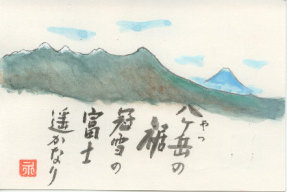 八ヶ岳の
やつ
裾
冠雪の
富士
遥かなり